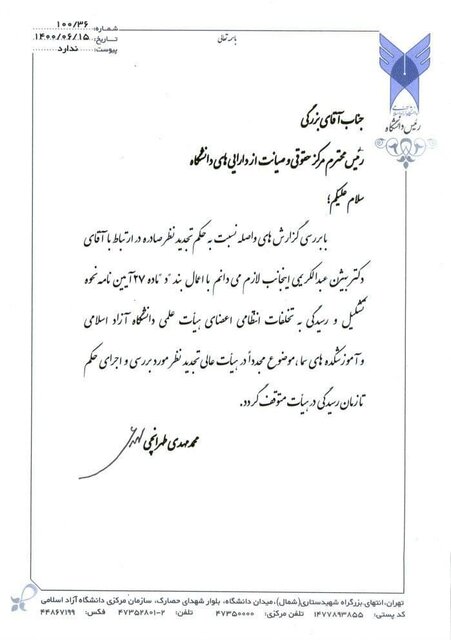 باسمه تعالی
شماره: ۱۰۰/۳۶
تاریخ: ۱۴۰۰/۰۶/۱۵
پیوست: ندارد
رئیس دانشگاه
جناب آقای بزرگی
رئیس محترم مرکز حقوقی و صیانت از دارایی های دانشگاه
سلام علیکم؛
با بررسی گزارش های واصله نسبت به حکم تجدید نظر صادره در ارتباط با آقای
دکتر بیژن عبدالکریمی اینجانب لازم می دانم با اعمال بند "د" ماده ۲۷ آیین نامه نحوه
تشکیل و رسیدگی به تخلفات انتظامی اعضای هیأت علمی دانشگاه آزاد اسلامی
و آموزشکده های سما، موضوع مجدداً در هیأت عالی تجدید نظر مورد بررسی و اجرای حکم
تا زمان رسیدگی در هیأت متوقف گردد.
محمد مهدی طهرانچی
تهران، انتهای بزرگراه شهیدستاری(شمال)، میدان دانشگاه، بلوار شهدای حصارک، سازمان مرکزی دانشگاه آزاد اسلامی
کد پستی: ۱۴۷۷۸۹۳۸۵۵ تلفن مرکزی: ۴۷۳۵۰۰۰۰ تلفن: ۲-۴۷۳۵۲۸۰۱ فکس: ۴۴۸۶۷۱۹۹